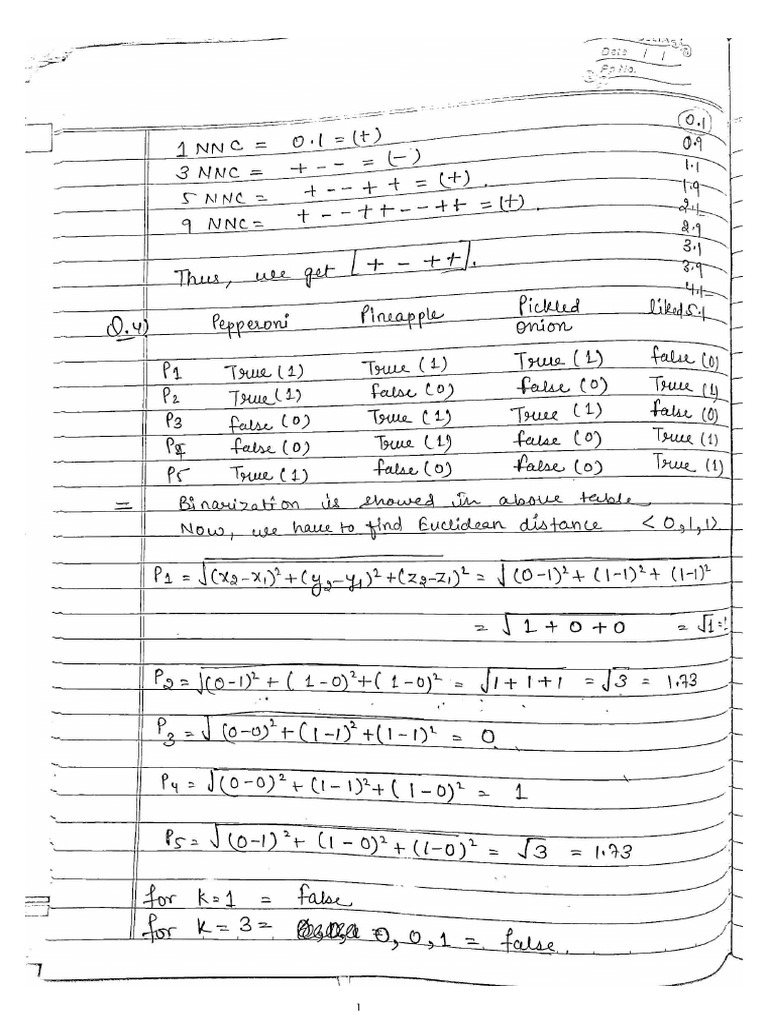 Date / /
Pg No.
1 NNC = 0.1 = (+)
3 NNC = + - - = (-)
5 NNC = + - - + + = (+).
9 NNC = + - - + + - - + + = (+).
0.1
0.9
1.1
1.9
2.1
2.9
3.1
3.9
4.1
5.1
Thus, we get [+ - + +].
Q.4) Pepperoni Pineapple Pickled onion liked
P1 True (1) True (1) True (1) false (0)
P2 True (1) false (0) false (0) True (1)
P3 false (0) True (1) True (1) false (0)
P4 false (0) True (1) false (0) True (1)
P5 True (1) false (0) false (0) True (1)
= Binarization is showed in above table
Now, we have to find Euclidean distance <0,1,1>
P1 = √(x2-x1)² + (y2-y1)² + (z2-z1)² = √(0-1)² + (1-1)² + (1-1)²
= √1 + 0 + 0 = √1 = 1
P2 = √(0-1)² + (1-0)² + (1-0)² = √1+1+1 = √3 = 1.73
P3 = √(0-0)² + (1-1)² + (1-1)² = 0
P4 = √(0-0)² + (1-1)² + (1-0)² = 1
P5 = √(0-1)² + (1-0)² + (1-0)² = √3 = 1.73
for K=1 = false
for K=3 = 0, 0, 1 = false
1